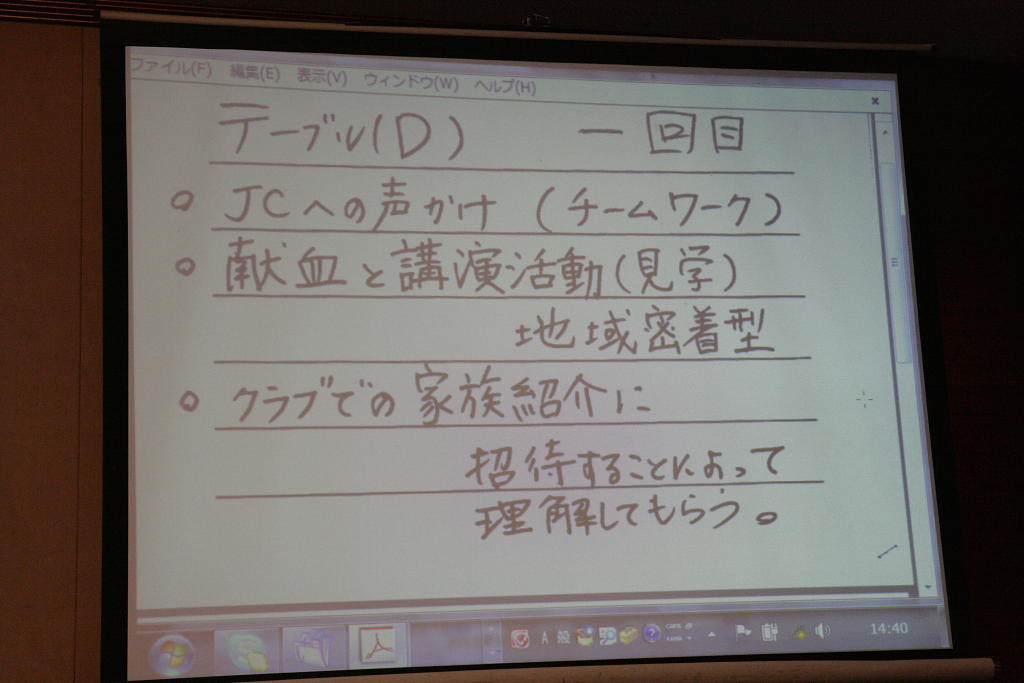 ファイル(F) 編集(E) 表示(V) ウィンドウ(W) ヘルプ(H)
テーブル(D) 一回目
○ JCへの声かけ (チームワーク)
○ 献血と講演活動(見学)
地域密着型
○ クラブでの家族紹介に
招待することによって
理解してもらう。
A 般 CAPS KANA 14:40